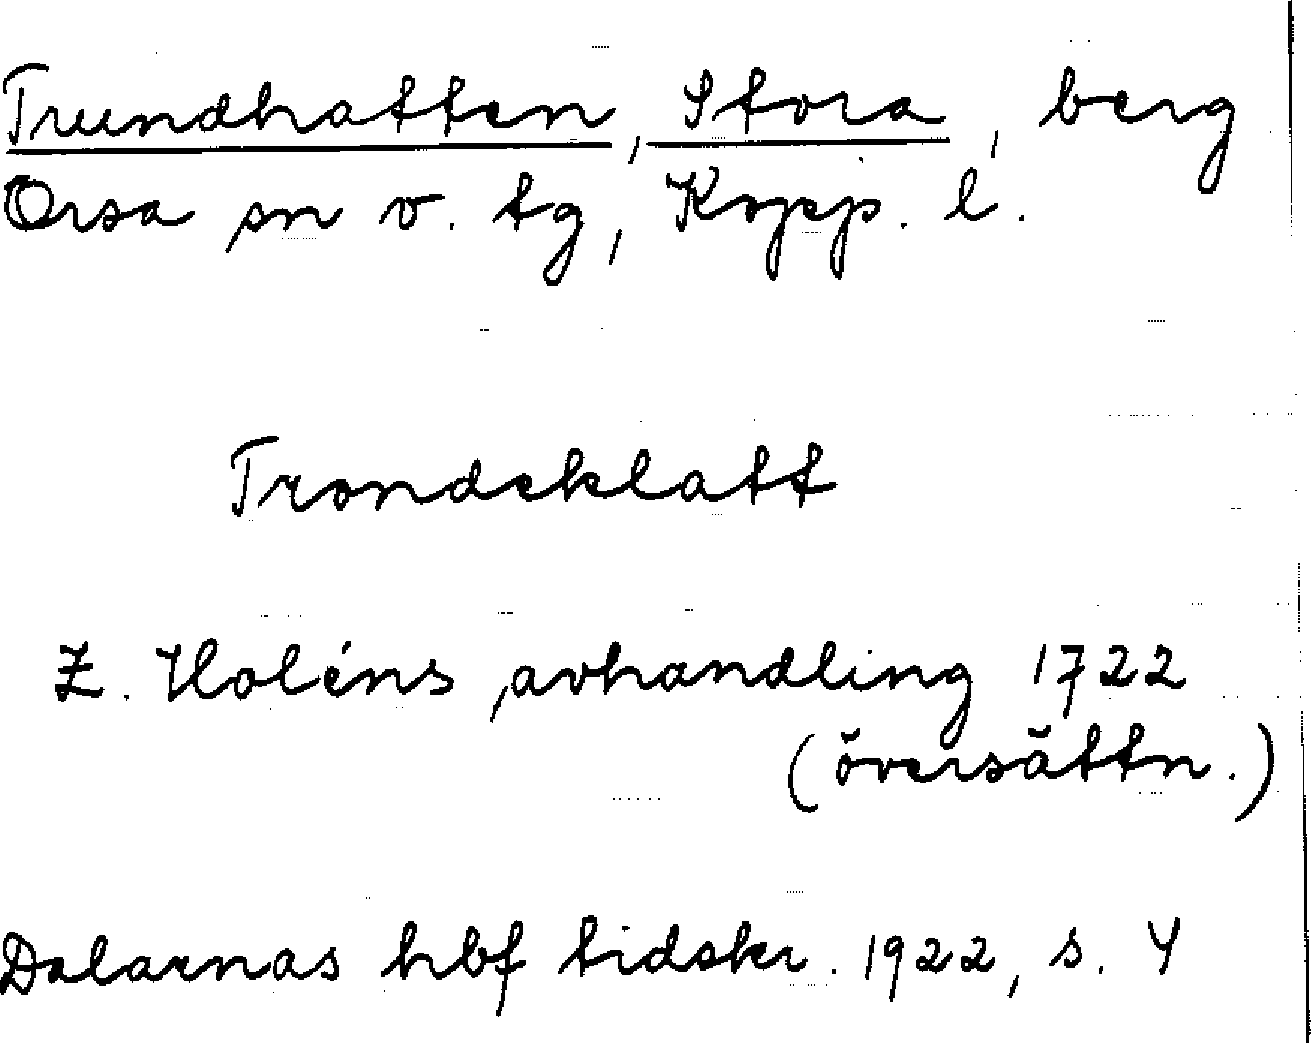 Trundhatten, Stora, berg
Orsa sn v. tg, Kopp. l.
Trondeklatt
Z. Holéns avhandling 1722
(översättn.)
Dalarnas hbf tidskr. 1922, s. 4